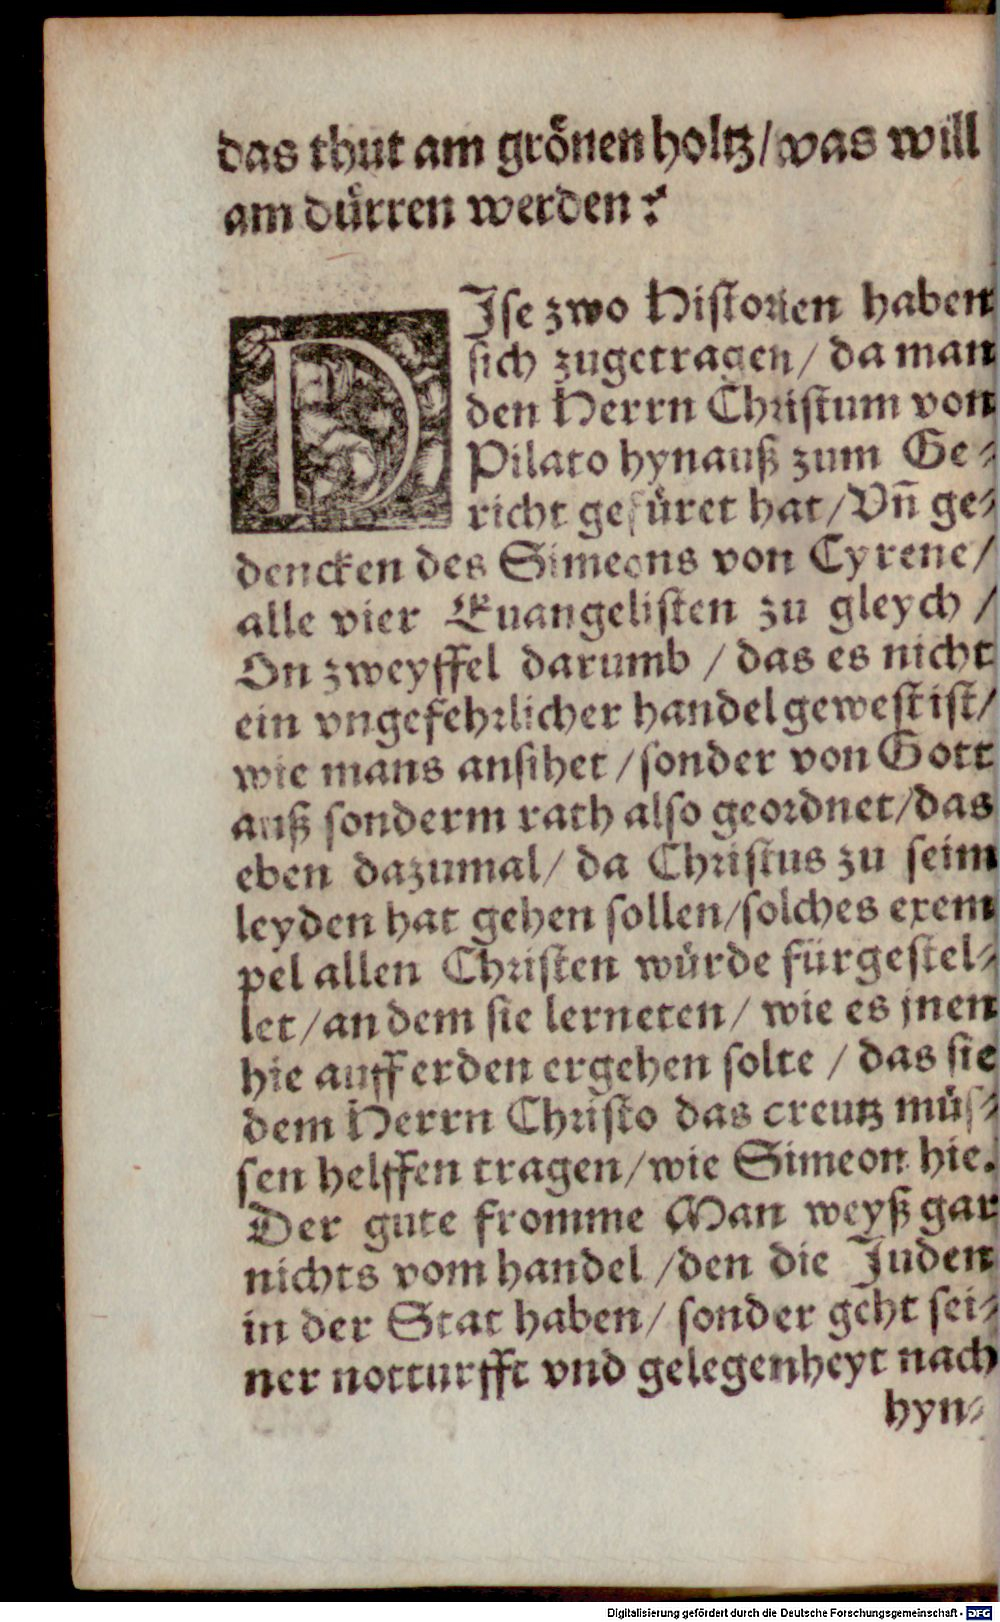 das thut am grönen holtz/was will
am dürren werden?
DIse zwo Historien haben
sich zugetragen/ da man
den Herrn Christum von
Pilato hynauß zum Ge-
richt gefüret hat/Vñ ge-
dencken des Simeons von Cyrene/
alle vier Euangelisten zu gleych /
On zweyffel darumb / das es nicht
ein vngefehrlicher handel gewest ist/
wie mans ansihet /sonder von Gott
auß sonderm rath also geordnet/das
eben dazumal/ da Christus zu seim
leyden hat gehen sollen/solches exem
pel allen Christen würde fürgestel-
let/an dem sie lerneten/ wie es jnen
hie auff erden ergehen solte / das sie
dem Herrn Christo das creutz müs-
sen helffen tragen/wie Simeon hie.
Der gute fromme Man weyß gar
nichts vom handel /den die Juden
in der Stat haben/ sonder geht sei-
ner notturfft vnd gelegenheyt nach
hyn-
Digitalisierung gefördert durch die Deutsche Forschungsgemeinschaft - DFG